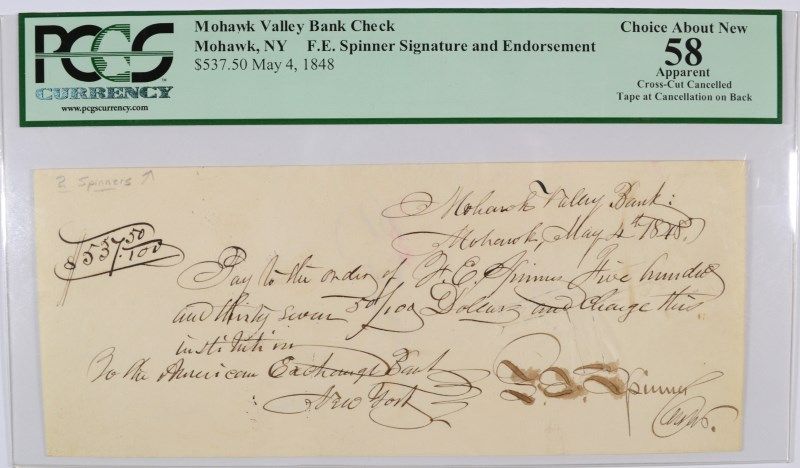 PCGS
CURRENCY
www.pcgscurrency.com
Mohawk Valley Bank Check
Mohawk, NY F.E. Spinner Signature and Endorsement
$537.50 May 4, 1848
Choice About New
58
Apparent
Cross-Cut Cancelled
Tape at Cancellation on Back
2 Spinners
Mohawk Valley Bank:
Mohawk, May 4th 1848.
$537.50/100
Pay to the order of F. E. Spinner Five hundred
and thirty seven 50/100 Dollars and charge this
institution
To the American Exchange Bank
New York
F. E. Spinner
Cash.